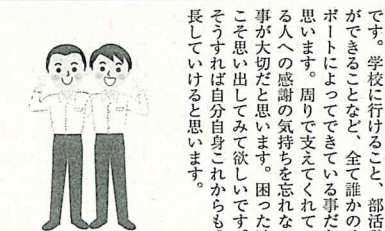 です。学校に行けること、部活動
ができることなど、全て誰かのサ
ポートによってできている事だと
思います。周りで支えてくれてい
る人への感謝の気持ちを忘れない
事が大切だと思います。困った時
こそ思い出してみて欲しいです。
そうすれば自分自身これからも成
長していけると思います。